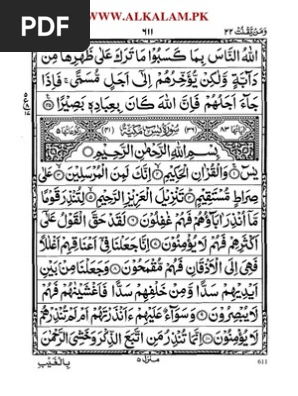 PDF
WWW.ALKALAM.PK
٦١١
اللهُ النَّاسَ بِمَا كَسَبُوْا مَا تَرَكَ عَلٰى ظَهْرِهَا مِنْ
دَآبَّةٍ وَّلٰكِنْ يُّؤَخِّرُهُمْ اِلٰٓى اَجَلٍ مُّسَمًّىۚ فَاِذَا
جَآءَ اَجَلُهُمْ فَاِنَّ اللهَ كَانَ بِعِبَادِهٖ بَصِيْرًا
سُوْرَةُ يٰسٓ مَكِّيَّةٌ
بِسْمِ اللهِ الرَّحْمٰنِ الرَّحِيْمِ
يٰسٓ وَالْقُرْاٰنِ الْحَكِيْمِ اِنَّكَ لَمِنَ الْمُرْسَلِيْنَ عَلٰى
صِرَاطٍ مُّسْتَقِيْمٍ تَنْزِيْلَ الْعَزِيْزِ الرَّحِيْمِ لِتُنْذِرَ قَوْمًا
مَّآ اُنْذِرَ اٰبَآؤُهُمْ فَهُمْ غٰفِلُوْنَ لَقَدْ حَقَّ الْقَوْلُ عَلٰٓى
اَكْثَرِهِمْ فَهُمْ لَا يُؤْمِنُوْنَ اِنَّا جَعَلْنَا فِيْٓ اَعْنَاقِهِمْ اَغْلٰلًا
فَهِيَ اِلَى الْاَذْقَانِ فَهُمْ مُّقْمَحُوْنَ وَجَعَلْنَا مِنْۢ بَيْنِ
اَيْدِيْهِمْ سَدًّا وَّمِنْ خَلْفِهِمْ سَدًّا فَاَغْشَيْنٰهُمْ فَهُمْ
لَا يُبْصِرُوْنَ وَسَوَآءٌ عَلَيْهِمْ ءَاَنْذَرْتَهُمْ اَمْ لَمْ تُنْذِرْهُمْ
لَا يُؤْمِنُوْنَ اِنَّمَا تُنْذِرُ مَنِ اتَّبَعَ الذِّكْرَ وَخَشِيَ الرَّحْمٰنَ
بِالْغَيْبِ
منزل ٥
611